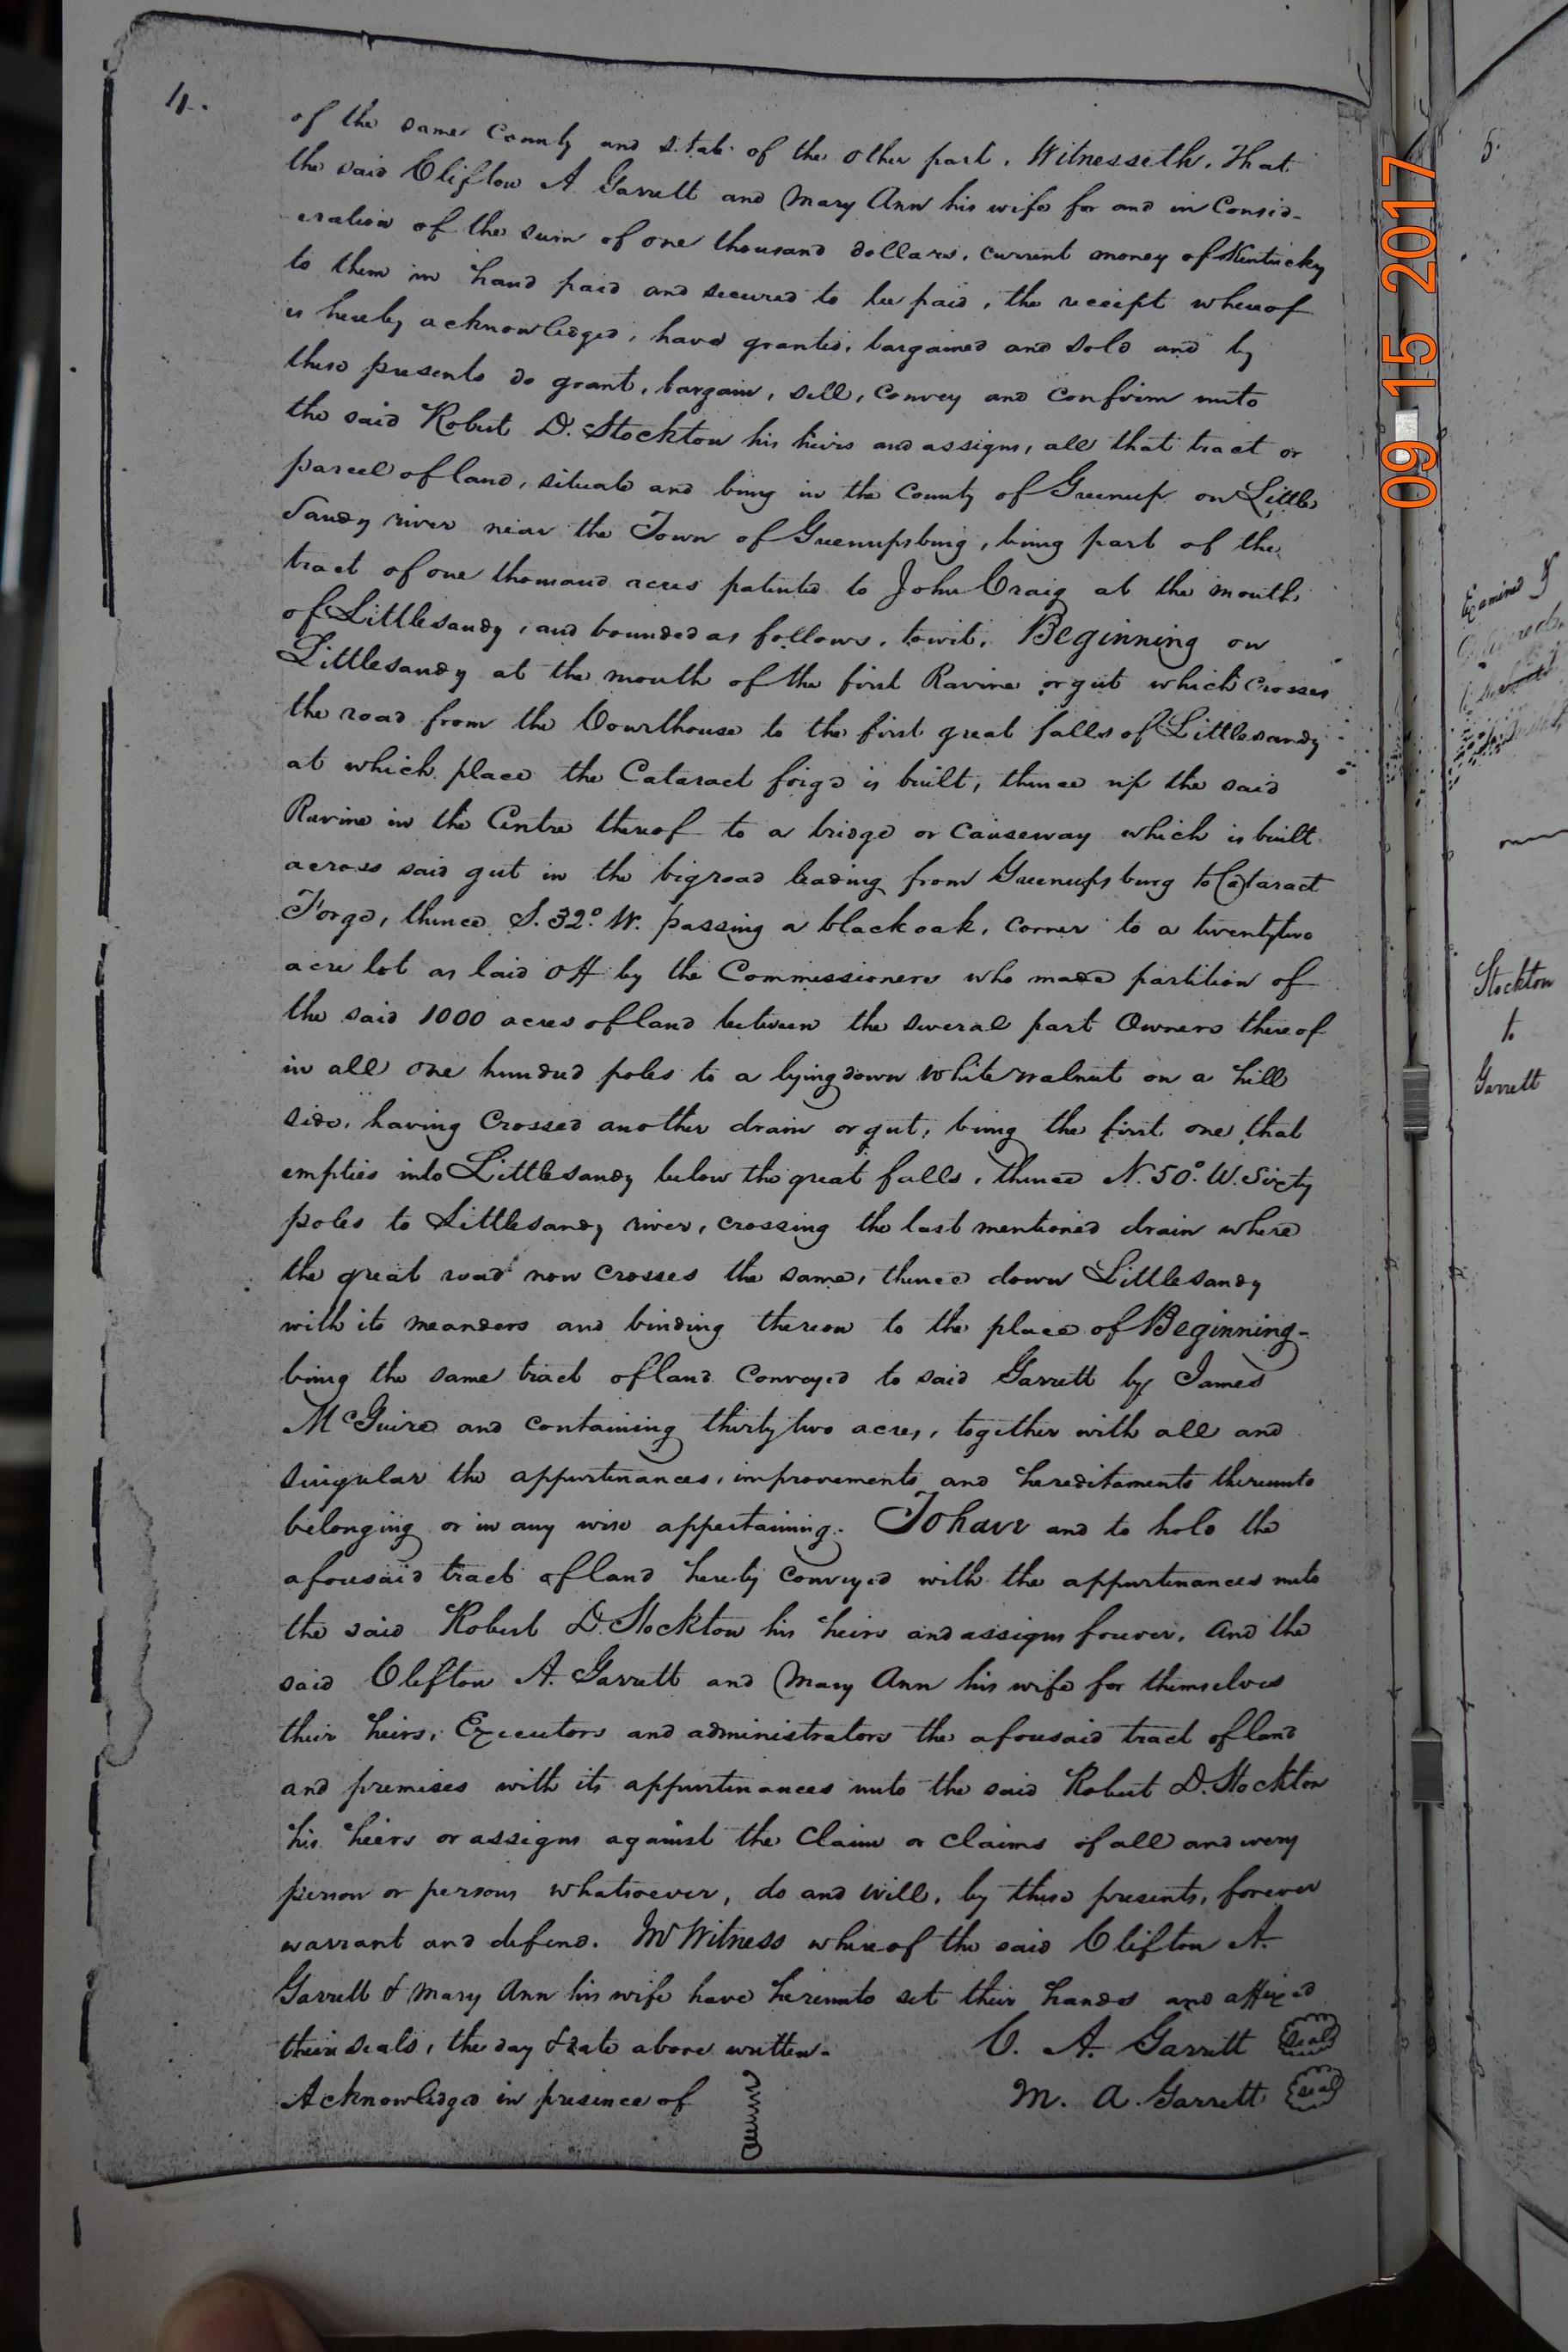 4.
of the same County and State of the other part. Witnesseth. That
the said Clifton A. Garrett and Mary Ann his wife for and in Consid-
eration of the sum of one thousand dollars, current money of Kentucky
to them in hand paid and secured to be paid, the receipt whereof
is hereby acknowledged, have granted, bargained and sold and by
these presents do grant, bargain, sell, convey and confirm unto
the said Robert D. Stockton his heirs and assigns, all that tract or
parcel of land, situate and being in the County of Greenup on Little
Sandy river near the Town of Greenupsburg, being part of the
tract of one thousand acres patented to John Craig at the mouth
of Littlesandy, and bounded as follows, towit. Beginning on
Littlesandy at the mouth of the first Ravine or gut which crosses
the road from the Courthouse to the first great falls of Littlesandy
at which place the Cataract forge is built, thence up the said
Ravine in the Centre thereof to a bridge or causeway which is built
across said gut in the bigroad leading from Greenupsburg to Cataract
Forge, thence S. 32° W. passing a black oak, corner to a twentytwo
acre lot as laid off by the Commissioners who made partition of
the said 1000 acres of land between the several part Owners thereof
in all one hundred poles to a lying down white walnut on a hill
side, having crossed another drain or gut, being the first one that
empties into Littlesandy below the great falls, thence N. 50° W. Sixty
poles to Littlesandy river, crossing the last mentioned drain where
the great road now crosses the same, thence down Littlesandy
with its meanders and binding thereon to the place of Beginning-
being the same tract of land Conveyed to said Garrett by James
McGuire and containing thirty two acres, together with all and
singular the appurtenances, improvements and hereditaments thereunto
belonging or in any wise appertaining. To have and to hold the
aforesaid tract of land hereby conveyed with the appurtenances unto
the said Robert D. Stockton his heirs and assigns forever, And the
said Clifton A. Garrett and Mary Ann his wife for themselves
their heirs, Executors and administrators the aforesaid tract of land
and premises with its appurtenances unto the said Robert D. Stockton
his heirs or assigns against the Claim or claims of all and every
person or persons whatsoever, do and will, by these presents, forever
warrant and defend. In Witness whereof the said Clifton A.
Garrett & Mary Ann his wife have hereunto set their hands and affixed
their seals, the day & date above written.
C. A. Garrett Seal
Acknowledged in presence of
M. A. Garrett Seal
09 15 2017
5.
Examined &
Stockton
to
Garrett